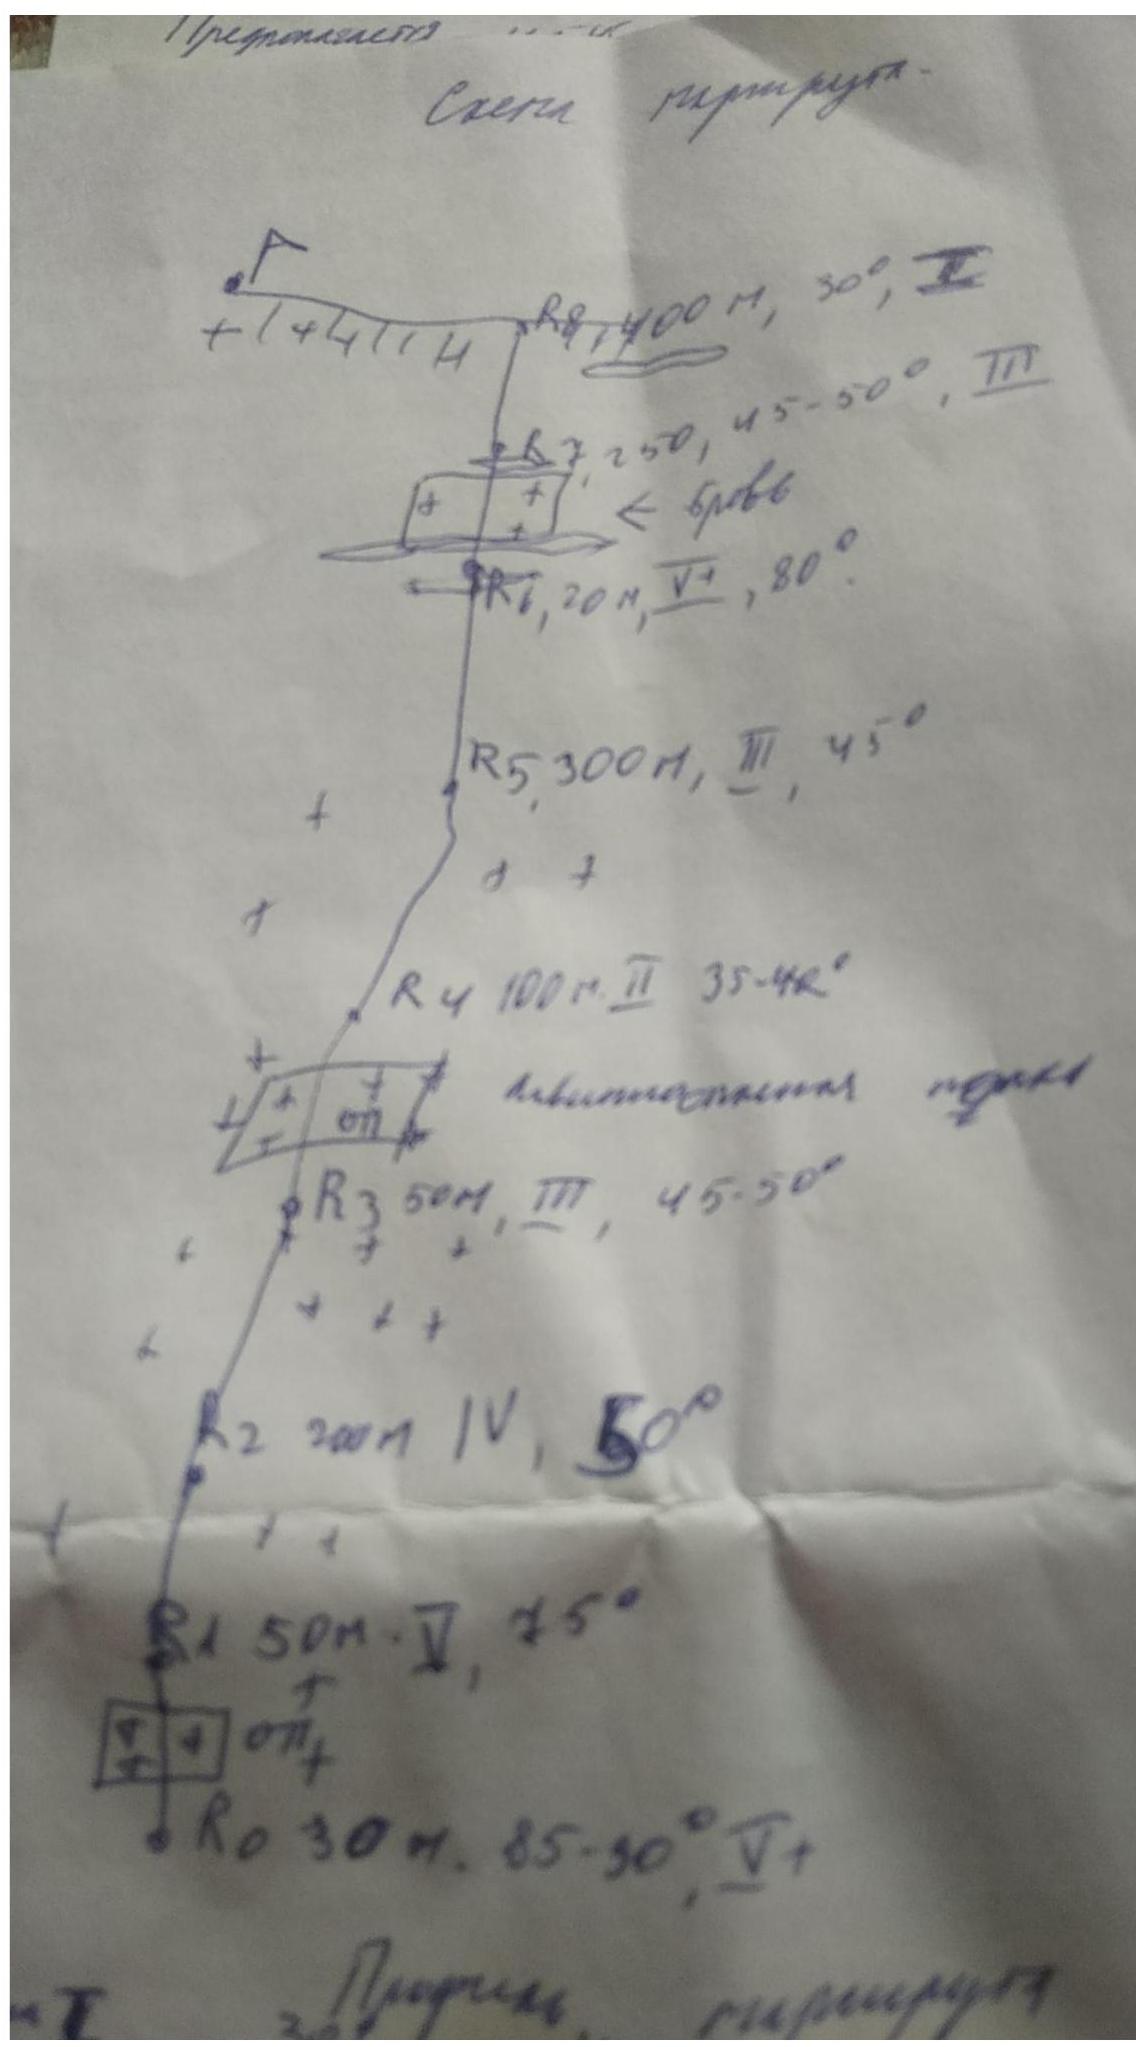 Предполагается
Схема маршрута.
R8, 400 м, 30°, II
R7, 250, 45-50°, III
← бровь
R6, 20 м, V+, 80°.
R5, 300 м, III, 45°
R4 100 м. II 35-40°
ОП полка
R3 50м, III, 45-50°
R2 200м IV, 50°
R1 50м. V, 75°
ОП
R0 30 м. 85-90°, V+
Профиль маршрута